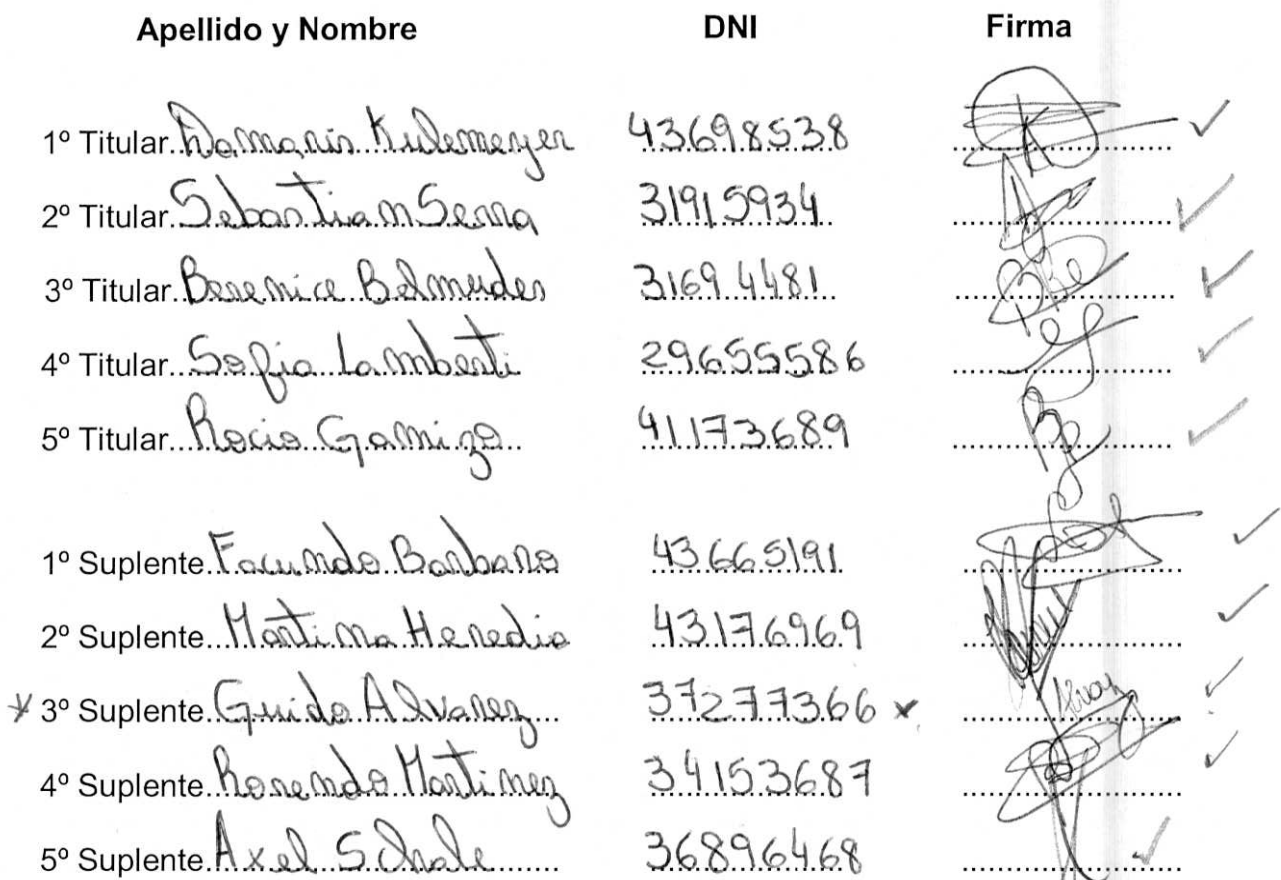 Apellido y Nombre DNI Firma
1º Titular Damaris Kulemeyer 43698538
2º Titular Sebastian Serra 31915934
3º Titular Berenice Belmudes 31694481
4º Titular Sofia Lamberti 29655586
5º Titular Rocio Gamizo 41173689
1º Suplente Facundo Barbaro 43665191
2º Suplente Martina Heredia 43176969
3º Suplente Guido Alvarez 37277366
4º Suplente Rosendo Martinez 34153687
5º Suplente Axel Schole 36896468